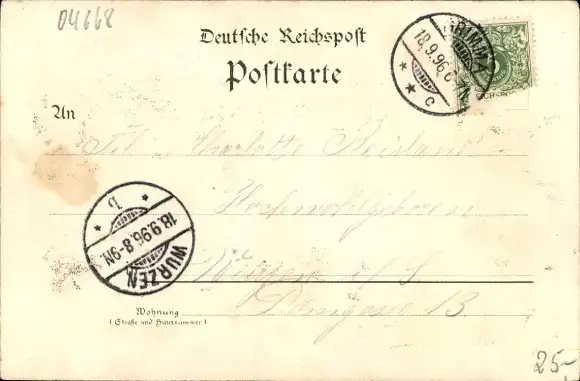 04668
Deutsche Reichspost
Postkarte
GRIMMA
18.9.96. 6-7N.
* * c
An
Frl. Charlotte
Hochwohlgeboren
b
18.9.96.8-9N.
WURZEN
Wurzen i/S
Domgasse 13.
Wohnung
(Straße und Hausnummer)
25-